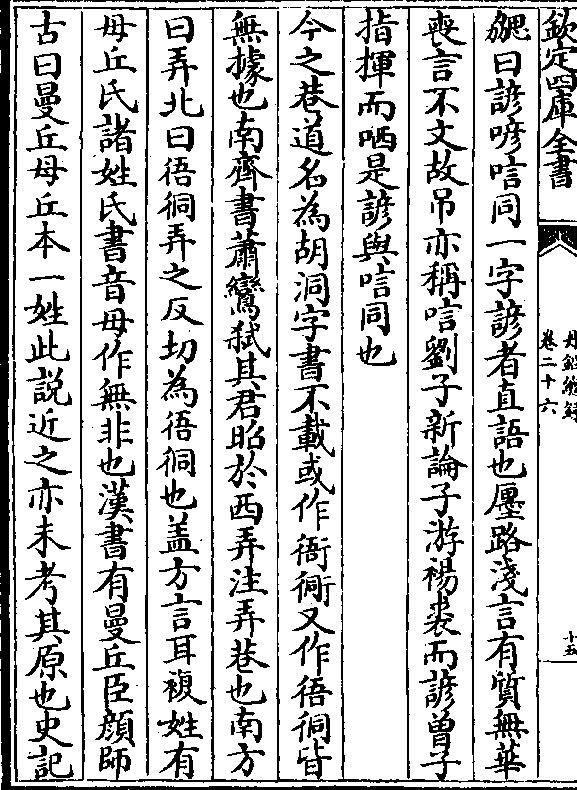 欽定四庫全書
丹鉛總錄
卷二十六
十五
勰曰諺喭唁同一字諺者直語也廛路淺言有質無華
喪言不文故吊亦稱唁劉子新論子游裼裘而諺曽子
指揮而哂是諺與唁同也
今之巷道名為胡洞字書不載或作衖衕又作徛衕皆
無據也南齊書蕭鸞弑其君昭於西弄注弄巷也南方
曰弄北曰徛衕弄之反切為徛衕也盖方言耳複姓有
毋丘氏諸姓氏書音毋作無非也漢書有曼丘臣顔師
古曰曼丘母丘本一姓此説近之亦未考其原也史記